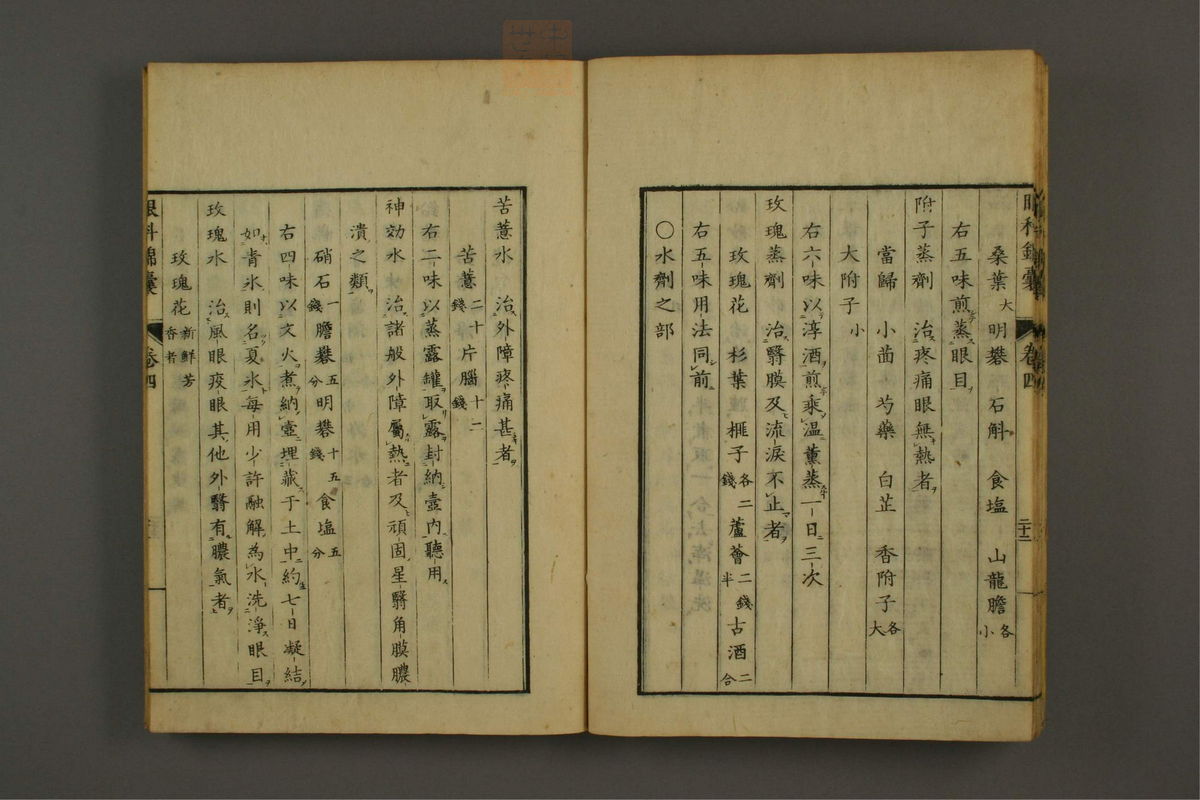 眼科錦囊 卷四 二十二
桑葉大 明礬 石斛 食塩 山龍膽各小
右五味煎蒸眼目
附子蒸劑 治疼痛眼無熱者
當歸 小茴 芍藥 白芷 香附子各大
大附子小
右六味以淳酒煎乘温薰蒸一日三次
玫瑰蒸劑 治翳膜及流淚不止者
玫瑰花 杉葉 榧子各二錢 蘆薈二錢半 古酒二合
右五味用法同前
〇水劑之部
苦薏水 治外障疼痛甚者
苦薏二十錢 片腦十二錢
右二味以蒸露罐取露封納壺内聽用
神効水 治諸般外障屬熱者及頑固星翳角膜膿
潰之類
硝石一錢 膽礬五分 明礬十五錢 食塩五分
右四味以文火煮納壺埋藏于土中約七日凝結
如青氷則名夏氷每用少許融解為水洗淨眼目
玫瑰水 治風眼疫眼其他外翳有膿氣者
玫瑰花新鮮芳香者
眼科錦囊 卷四